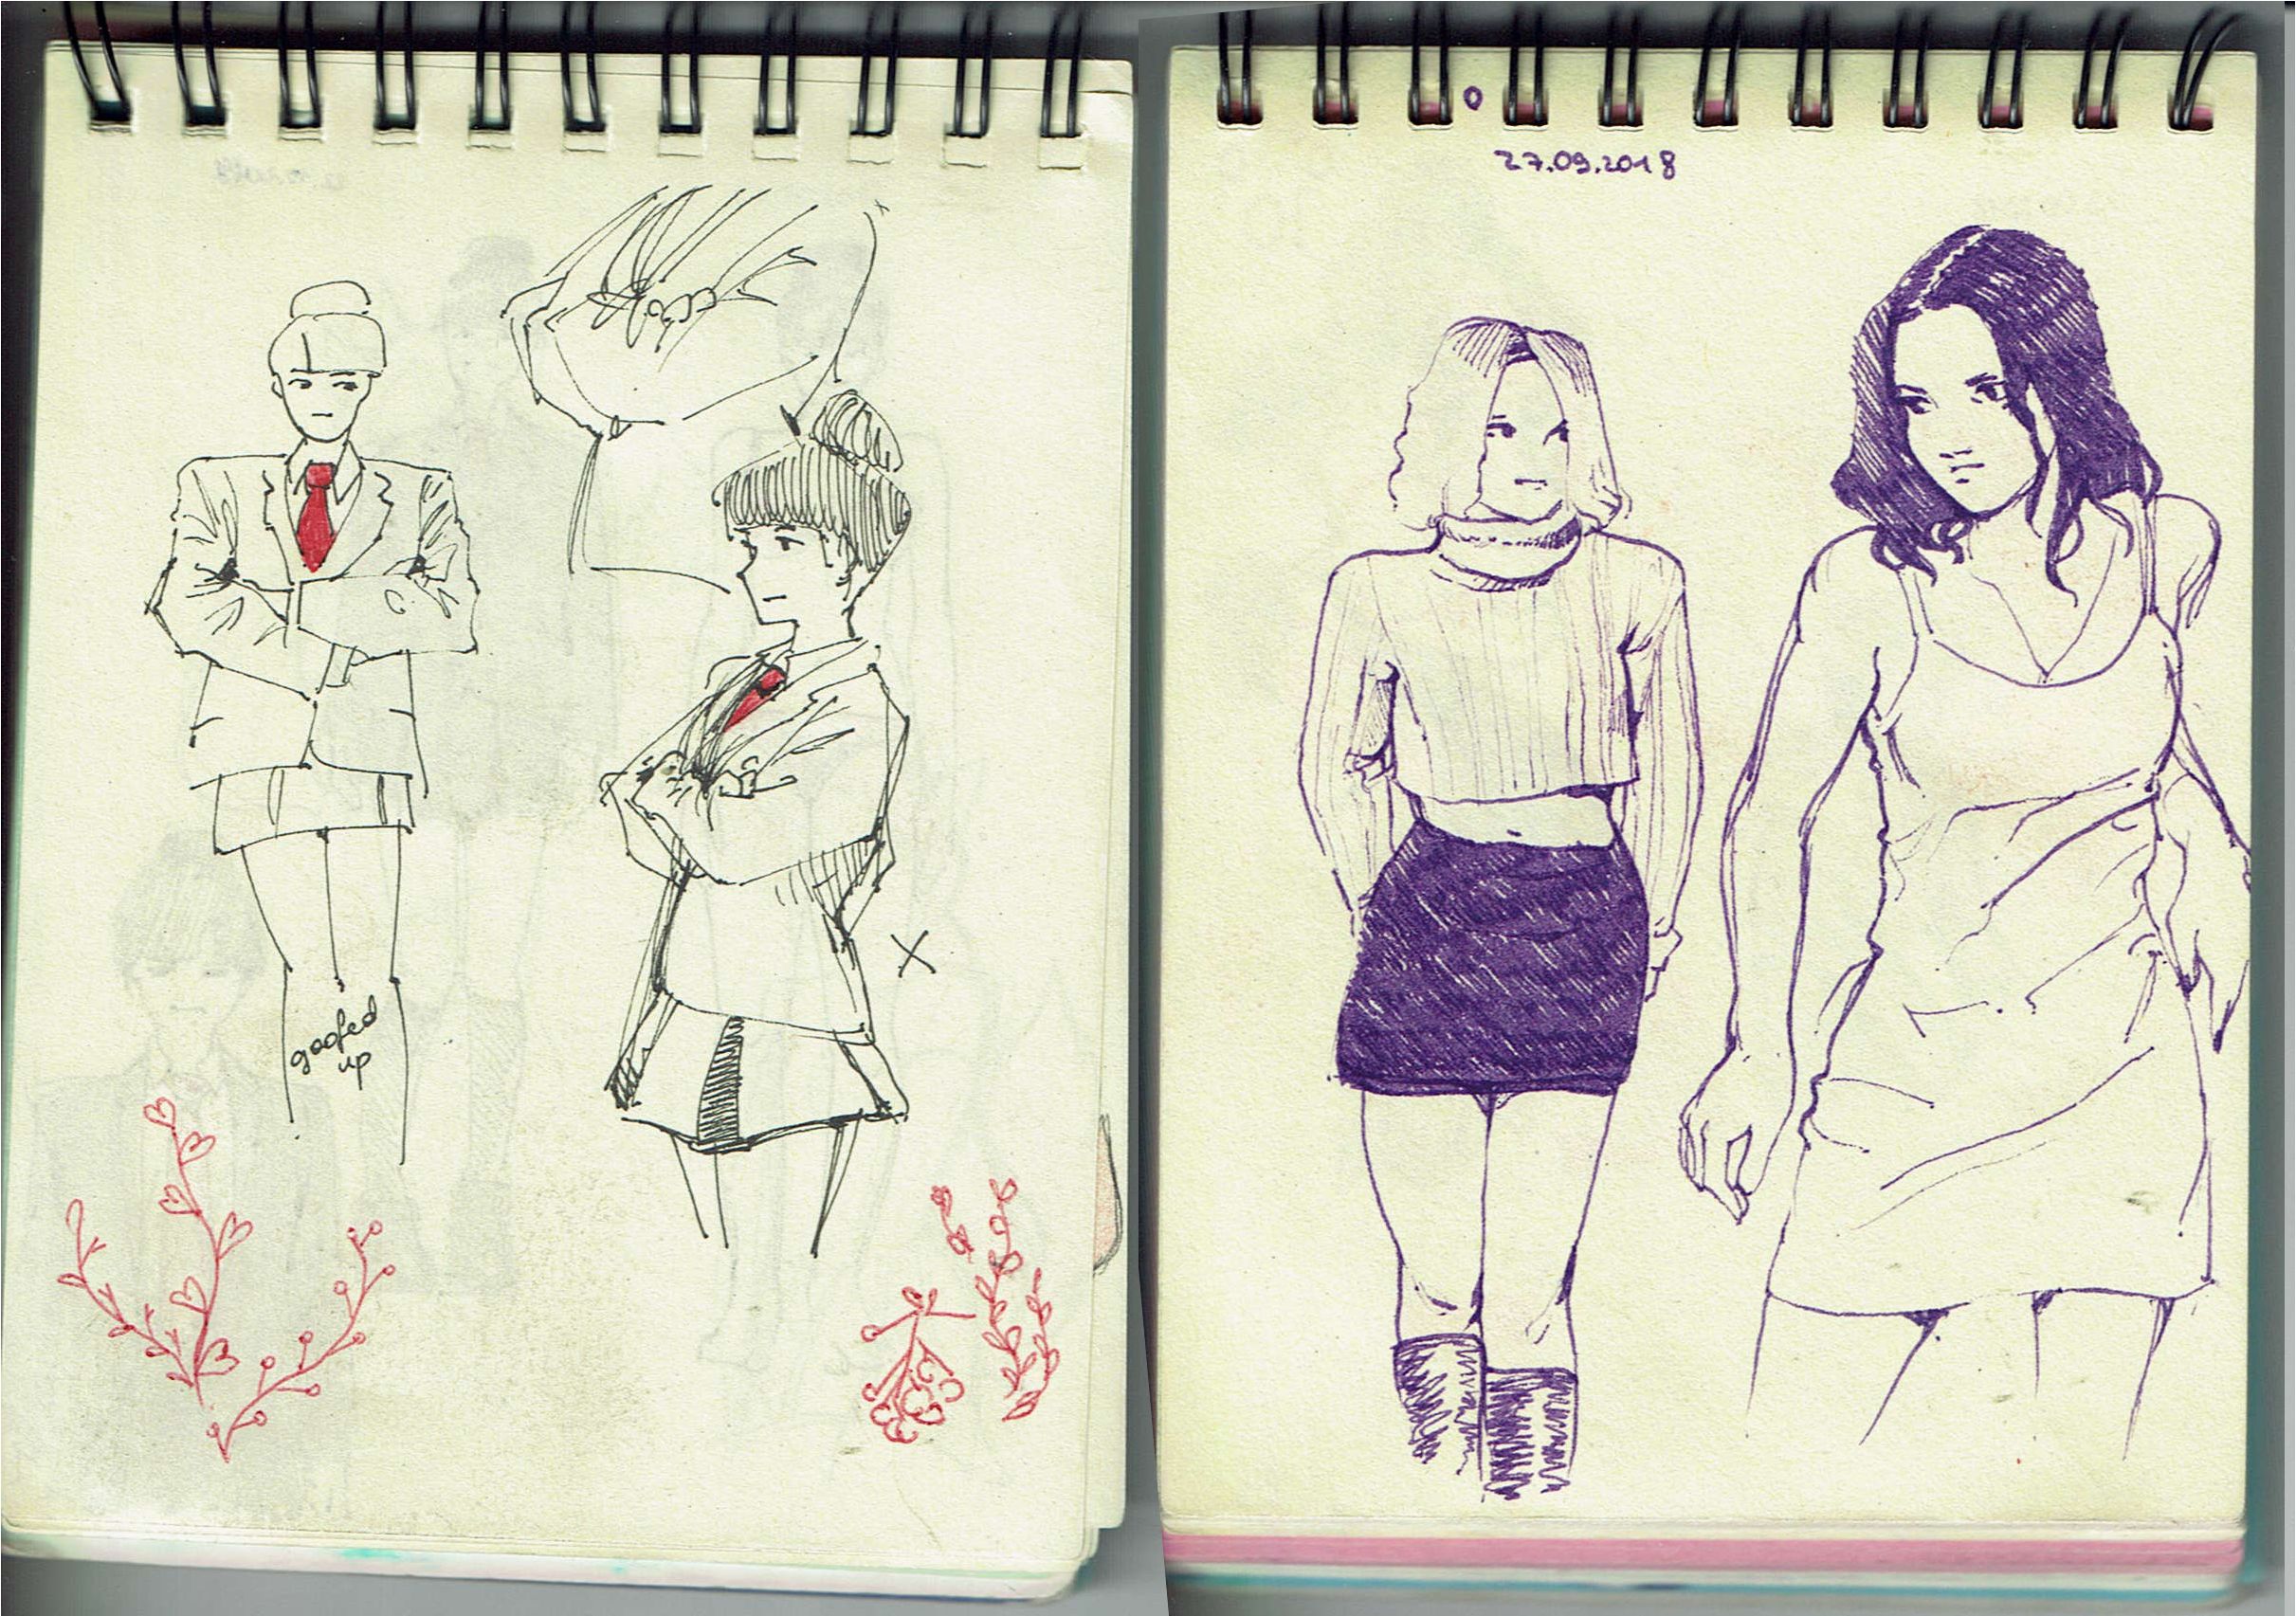 goofed
up
27.09.2018